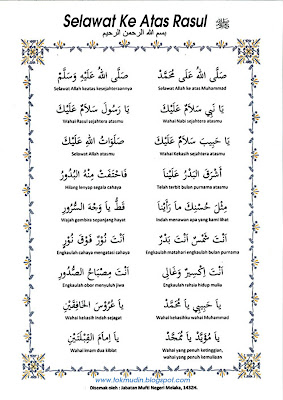 Selawat Ke Atas Rasul ﷺ
بسم الله الرحمن الرحيم
صَلَّى اللهُ عَلَى مُحَمَّدْ صَلَّى اللهُ عَلَيْهِ وَسَلَّمْ
Selawat Allah ke atas Muhammad Selawat Allah keatas kesejahteraannya
يَا نَبِي سَلَامٌ عَلَيْكَ يَا رَسُولَ سَلَامٌ عَلَيْكَ
Wahai Nabi sejahtera atasmu Wahai Rasul sejahtera atasmu
يَا حَبِيبَ سَلَامٌ عَلَيْكَ صَلَوَاتُ اللهِ عَلَيْكَ
Wahai Kekasih sejahtera atasmu Selawat Allah atasmu
أَشْرَقَ الْبَدْرُ عَلَيْنَا فَاخْتَفَتْ مِنْهُ الْبُدُورُ
Telah terbit bulan purnama atasmu Hilang lenyap segala cahaya
مِثْلَ حُسْنِكَ مَا رَأَيْنَا قَطُّ يَا وَجْهَ السُّرُورِ
Indah menawan apa yang kami lihat Wajah gembira sepanjang hayat
أَنْتَ شَمْسٌ أَنْتَ بَدْرٌ أَنْتَ نُورٌ فَوْقَ نُورٍ
Engkaulah matahari engkaulah bulan purnama Engkaulah cahaya mengatasi cahaya
أَنْتَ إِكْسِيرٌ وَغَالِي أَنْتَ مِصْبَاحُ الصُّدُورِ
Engkaulah rahsia hidup mulia Engkaulah obor menyuluh jiwa
يَا حَبِيبِي يَا مُحَمَّدْ يَا عَرُوسَ الْخَافِقَيْنِ
Wahai kekasihku wahai Muhammad Wahai kekasih indah sejagat
يَا مُؤَيَّدْ يَا مُمَجَّدْ يَا إِمَامَ الْقِبْلَتَيْنِ
Wahai yang penuh ketinggian, Wahai imam dua kiblat
wahai yang penuh kemuliaan
www.tokmudin.blogspot.com
Disemak oleh : Jabatan Mufti Negeri Melaka, 1432H.